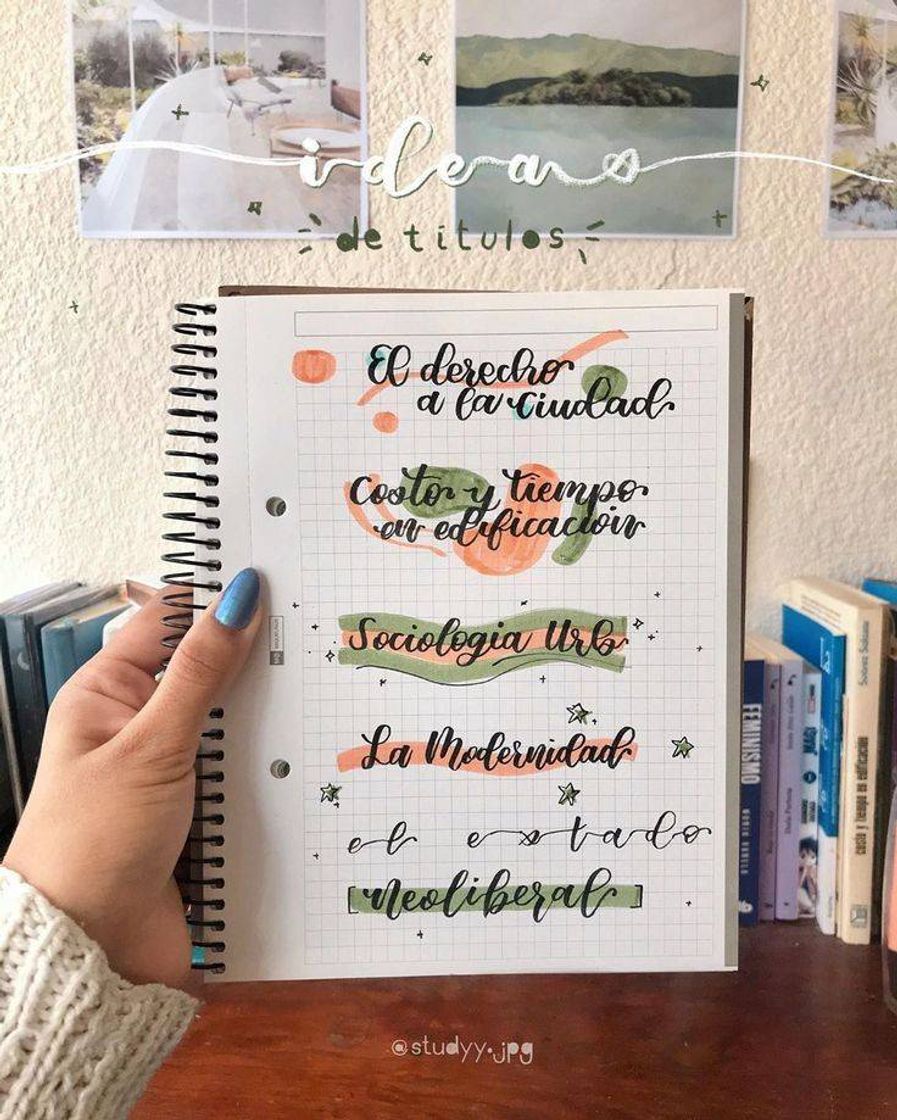 ideas
de titulos
El derecho
a la ciudad
Costo y tiempo
en edificación
Sociologia Urb
La Modernidad
el estado
Neoliberal
FEMINISMO
costo y tiempo en edificación
Suárez Salazar
@studyy.jpg